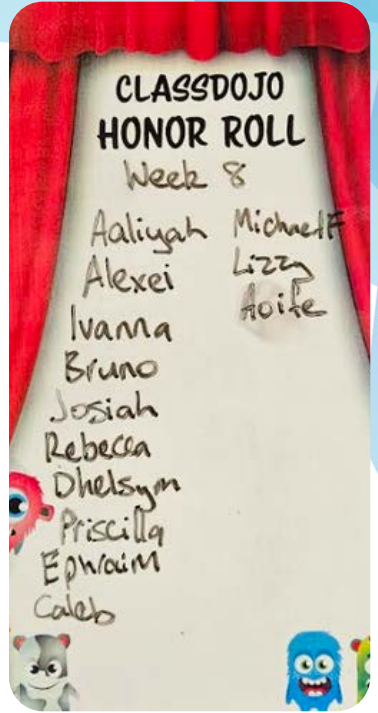 CLASSDOJO
HONOR ROLL
Week 8
Aaliyah
Alexei
Ivanna
Bruno
Josiah
Rebecca
Dhelsym
Priscilla
Ephraim
Caleb
Michael F
Lizzy
Aoife